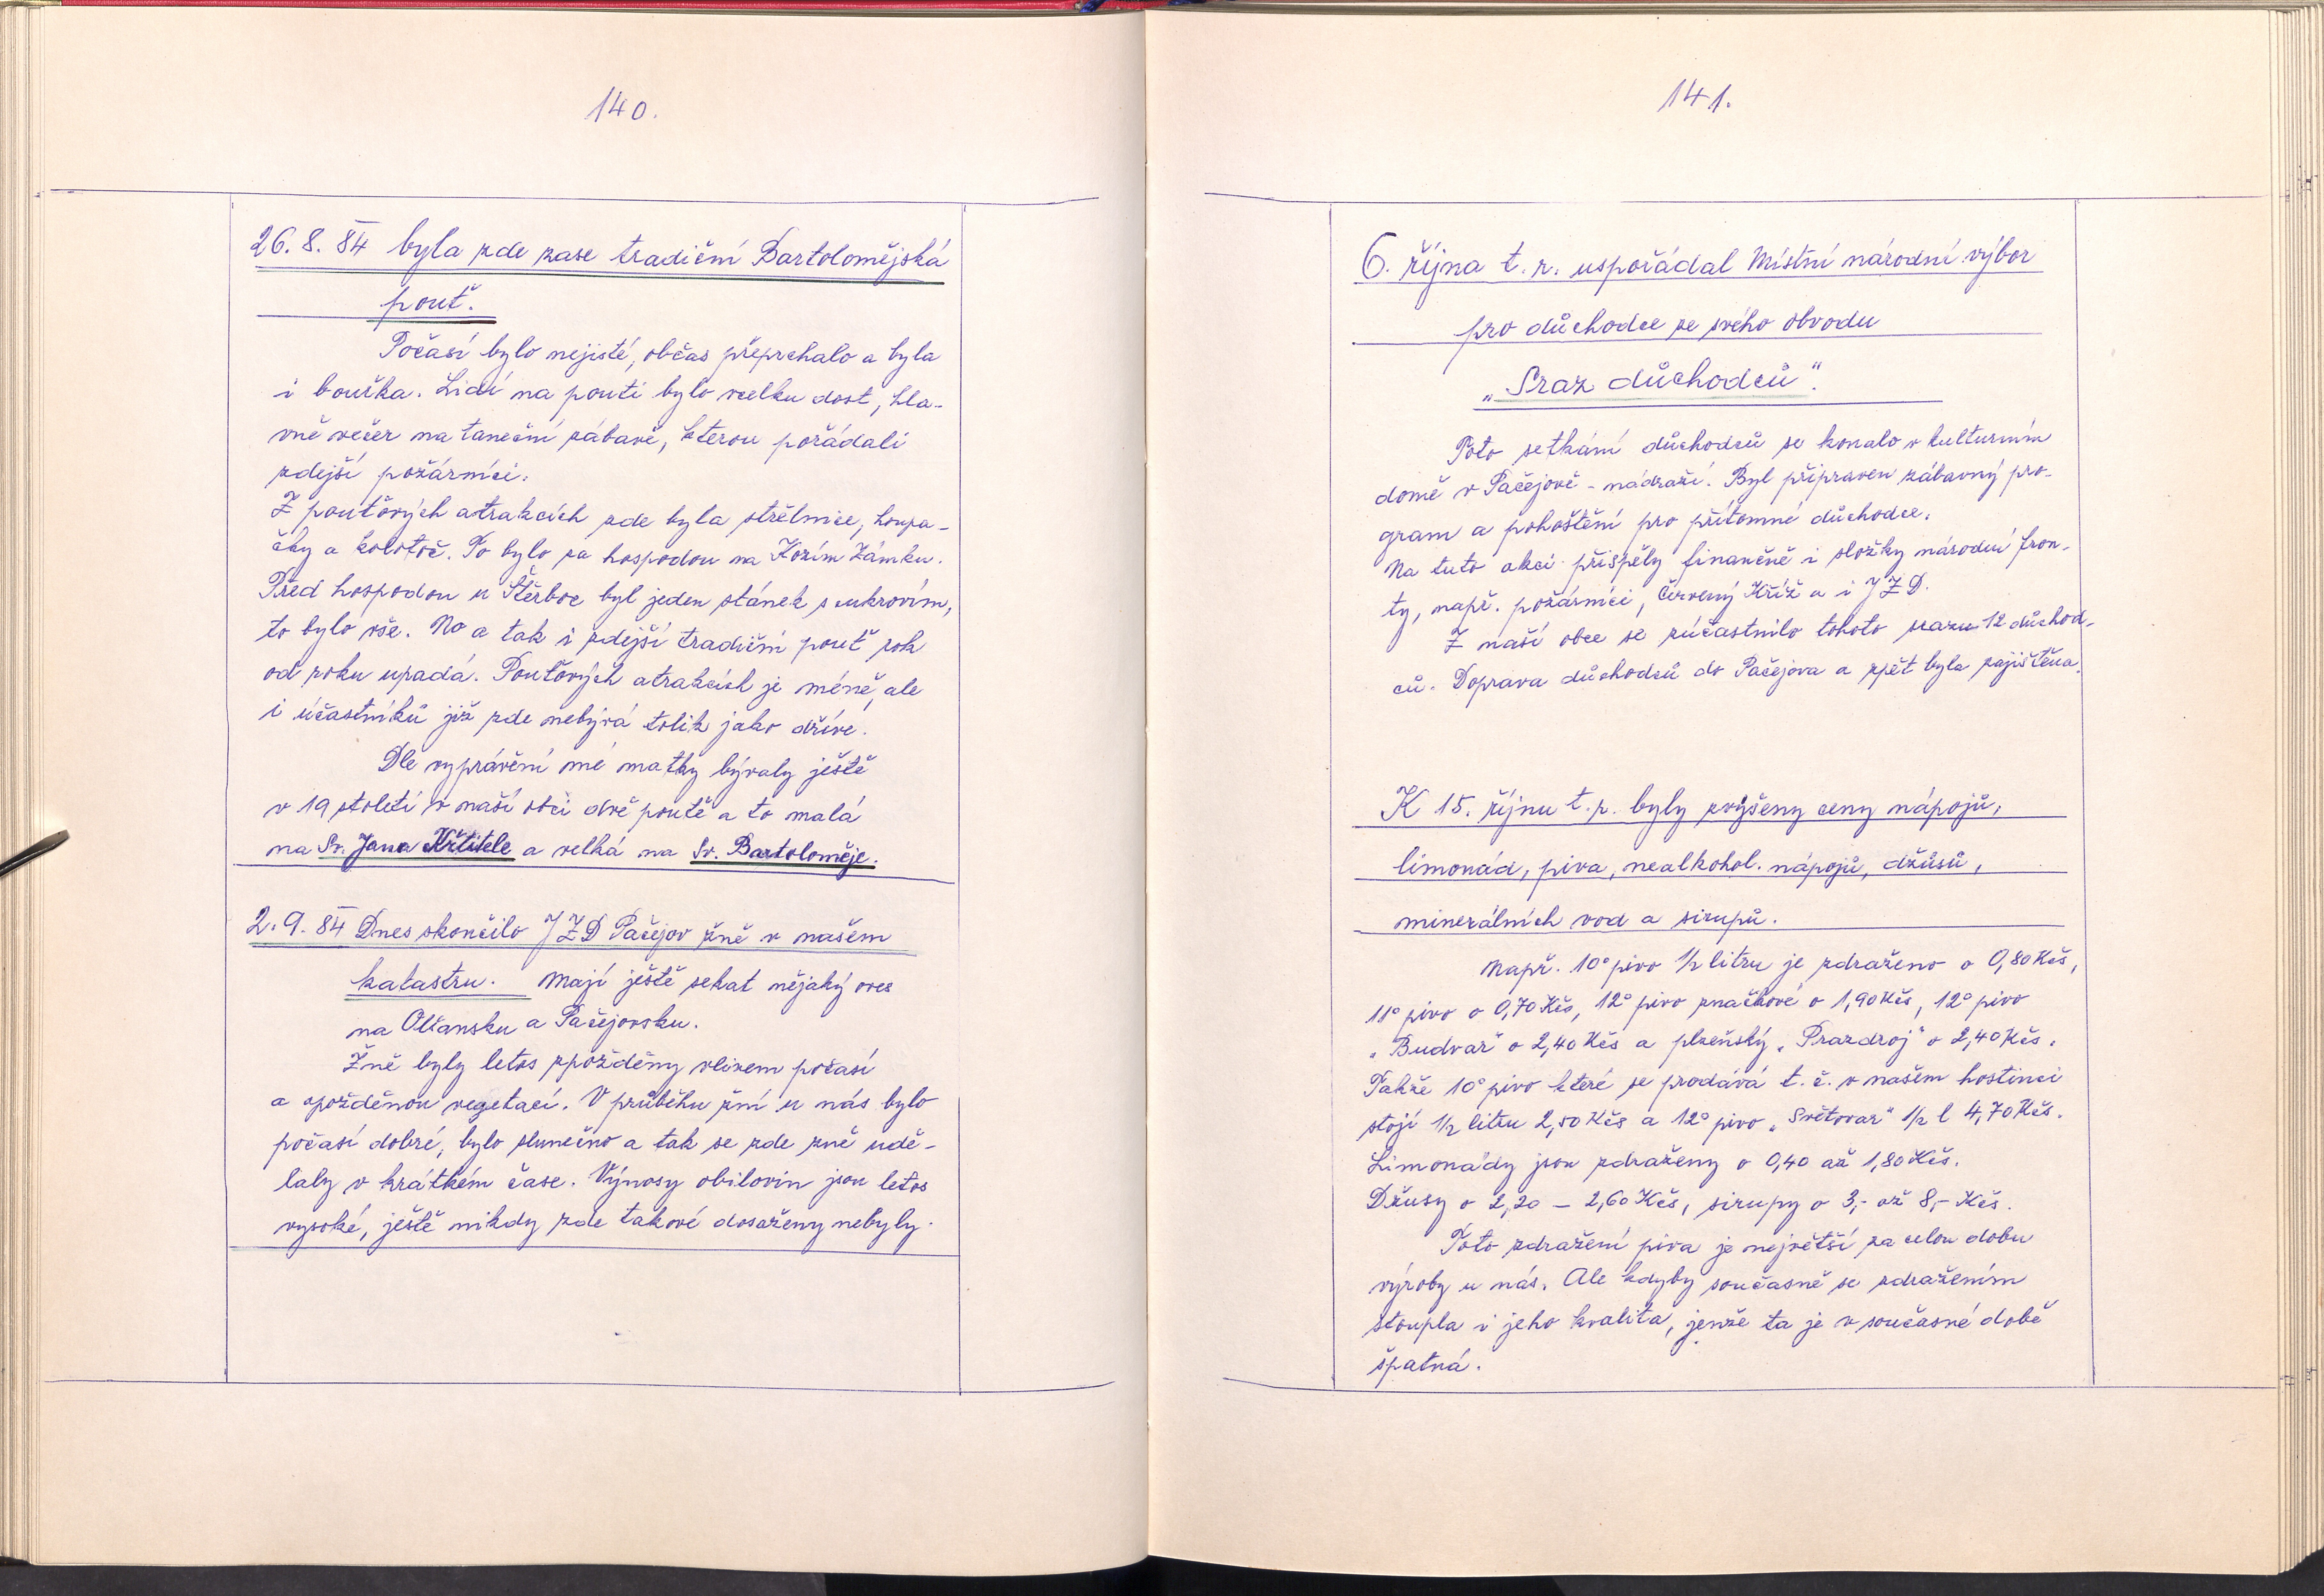 140.
26. 8. 84 byla zde zase tradiční Bartolomějská
pouť.
Počasí bylo nejisté, občas přeprchalo a byla
i bouřka. Lidí na pouti bylo vcelku dost, hla-
vně večer na taneční zábavě, kterou pořádali
zdejší požárníci.
Z pouťových atrakcích zde byla střelnice, houpa-
čky a kolotoč. To bylo za hospodou na Kozím Zámku.
Před hospodou u Štěrbce byl jeden stánek s cukrovím,
to bylo vše. No a tak i zdejší tradiční pouť rok
od roku upadá. Pouťových atrakcích je méně, ale
i účastníků již zde nebývá tolik jako dříve.
Dle vyprávění mé matky bývaly ještě
v 19 století v naší obci dvě poutě a to malá
na Sv. Jana Křtitele a velká na Sv. Bartoloměje.
2. 9. 84 Dnes skončilo JZD Pačejov žně v našem
katastru. Mají ještě sekat nějaký oves
na Olšansku a Pačejovsku.
Žně byly letos zpožděny vlivem počasí
a opožděnou vegetací. V průběhu žní u nás bylo
počasí dobré, bylo slunečno a tak se zde žně udě-
laly v krátkém čase. Výnosy obilovin jsou letos
vysoké, ještě nikdy zde takové dosaženy nebyly.
141.
6. října t. r. uspořádal Místní národní výbor
pro důchodce ze svého obvodu
„Sraz důchodců".
Toto setkání důchodců se konalo v kulturním
domě v Pačejově - nádraží. Byl připraven zábavný pro-
gram a pohoštění pro přítomné důchodce.
Na tuto akci přispěly finančně i složky národní fron-
ty, např. požárníci, Červený Kříž a i JZD.
Z naší obce se zúčastnilo tohoto srazu 12 důchod-
ců. Doprava důchodců do Pačejova a zpět byla zajištěna.
K 15. říjnu t. r. byly zvýšeny ceny nápojů,
limonád, piva, nealkohol. nápojů, džůsů,
minerálních vod a sirupů.
Např. 10° pivo 1/2 litru je zdraženo o 0,80 Kčs,
11° pivo o 0,70 Kčs, 12° pivo značkové o 1,90 Kčs, 12° pivo
„Budvar" o 2,40 Kčs a plzeňský „Prazdroj" o 2,40 Kčs.
Takže 10° pivo které se prodává t. č. v našem hostinci
stojí 1/2 litru 2,50 Kčs a 12° pivo „Světovar" 1/2 l 4,70 Kčs.
Limonády jsou zdraženy o 0,40 až 1,80 Kčs.
Džusy o 2,20 - 2,60 Kčs, sirupy o 3,- až 8,- Kčs.
Toto zdražení piva je největší za celou dobu
výroby u nás. Ale kdyby současně se zdražením
stoupla i jeho kvalita, jenže ta je v současné době
špatná.